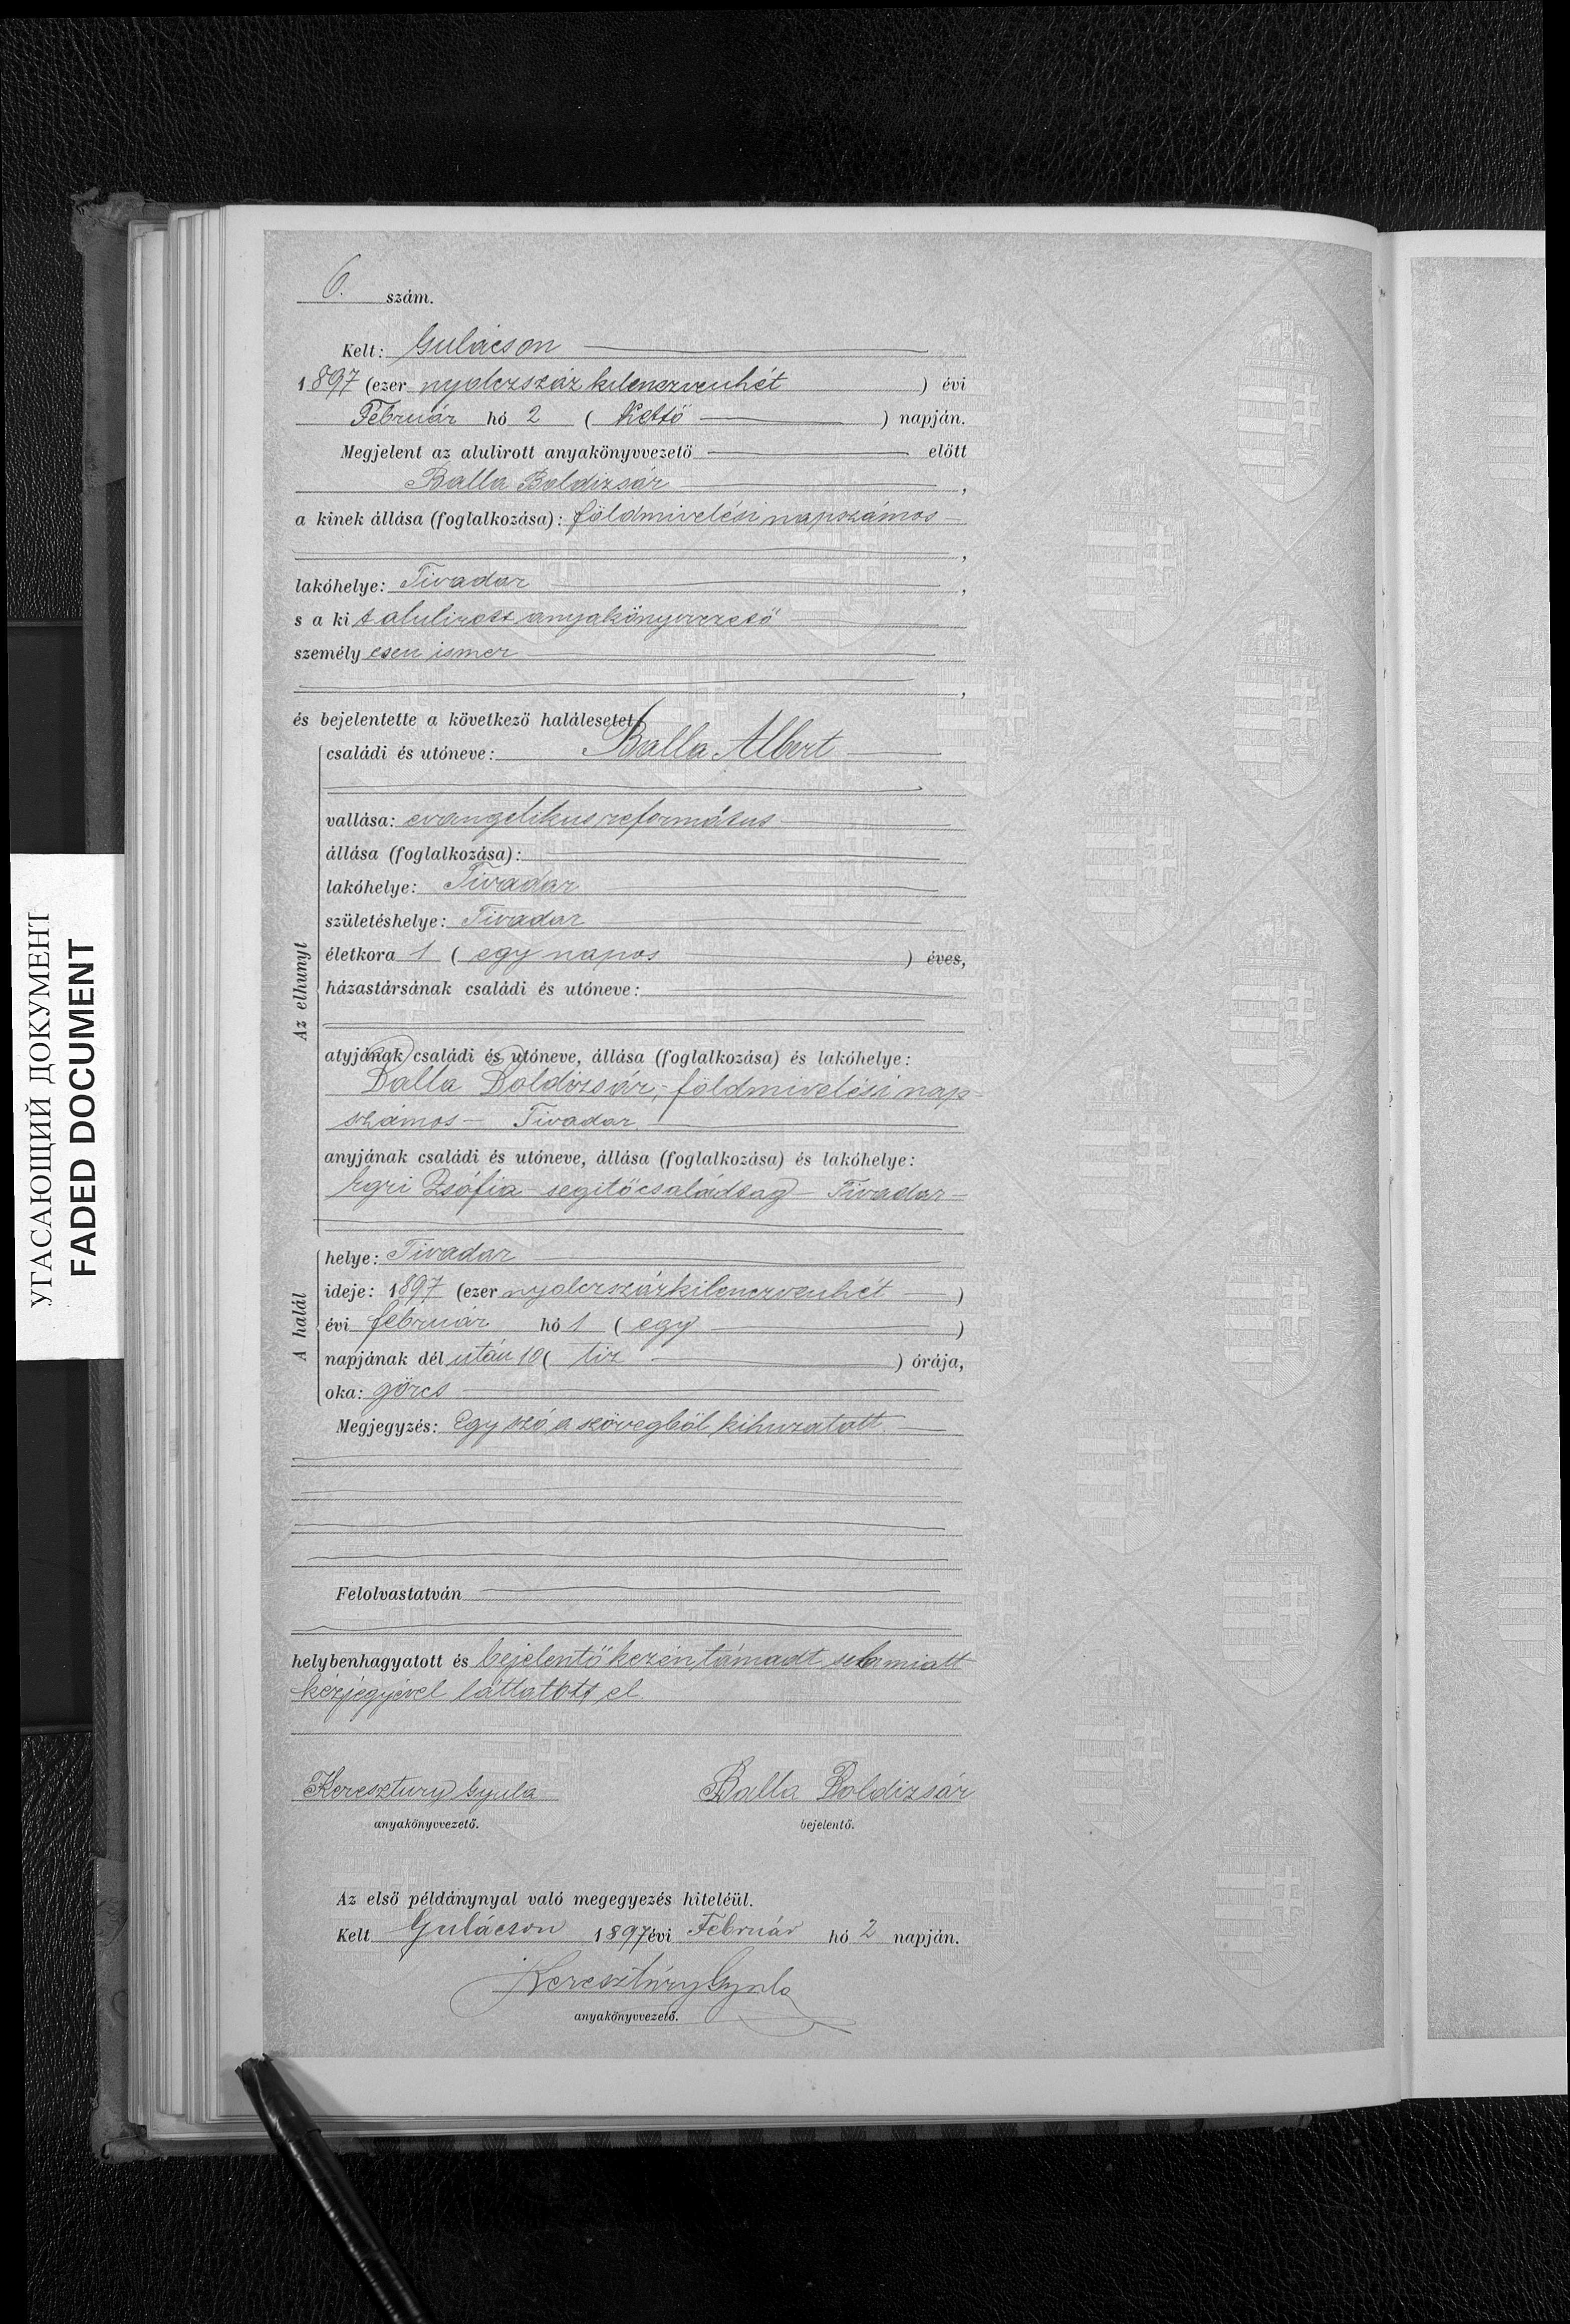 6. szám.
Kelt: Gulácson
1897 (ezer nyolczszáz kilenczvenhét) évi
Február hó 2 (Kettő) napján.
Megjelent az alulirott anyakönyvvezető előtt
Balla Boldizsár,
a kinek állása (foglalkozása): földmivelési napszámos
,
lakóhelye: Tivadar,
s a kit alulirott anyakönyvvezető
személyesen ismer
,
és bejelentette a következő halálesetet:
Az elhunyt
családi és utóneve: Balla Albert
vallása: evangelikus református
állása (foglalkozása):
lakóhelye: Tivadar
születéshelye: Tivadar
életkora 1 (egy napos) éves,
házastársának családi és utóneve:
atyjának családi és utóneve, állása (foglalkozása) és lakóhelye:
Balla Boldizsár, földmivelési nap-
számos - Tivadar
anyjának családi és utóneve, állása (foglalkozása) és lakóhelye:
Egri Zsófia - segitőcsaládtag - Tivadar -
A halál
helye: Tivadar
ideje: 1897 (ezer nyolczszázkilenczvenhét)
évi február hó 1 (egy)
napjának dél után 10 (tiz) órája,
oka: görcs
Megjegyzés: Egy szó a szövegből kihuzatott.
Felolvastatván
helybenhagyatott és bejelentő kezén támadt seb miatt
kézjegyével láttatott el
Keresztury Gyula Balla Boldizsár
anyakönyvvezető. bejelentő.
Az első példánynyal való megegyezés hiteléül.
Kelt Gulácson 1897 évi Február hó 2 napján.
Keresztúry Gyula
anyakönyvvezető.
УГАСАЮЩИЙ ДОКУМЕНТ
FADED DOCUMENT